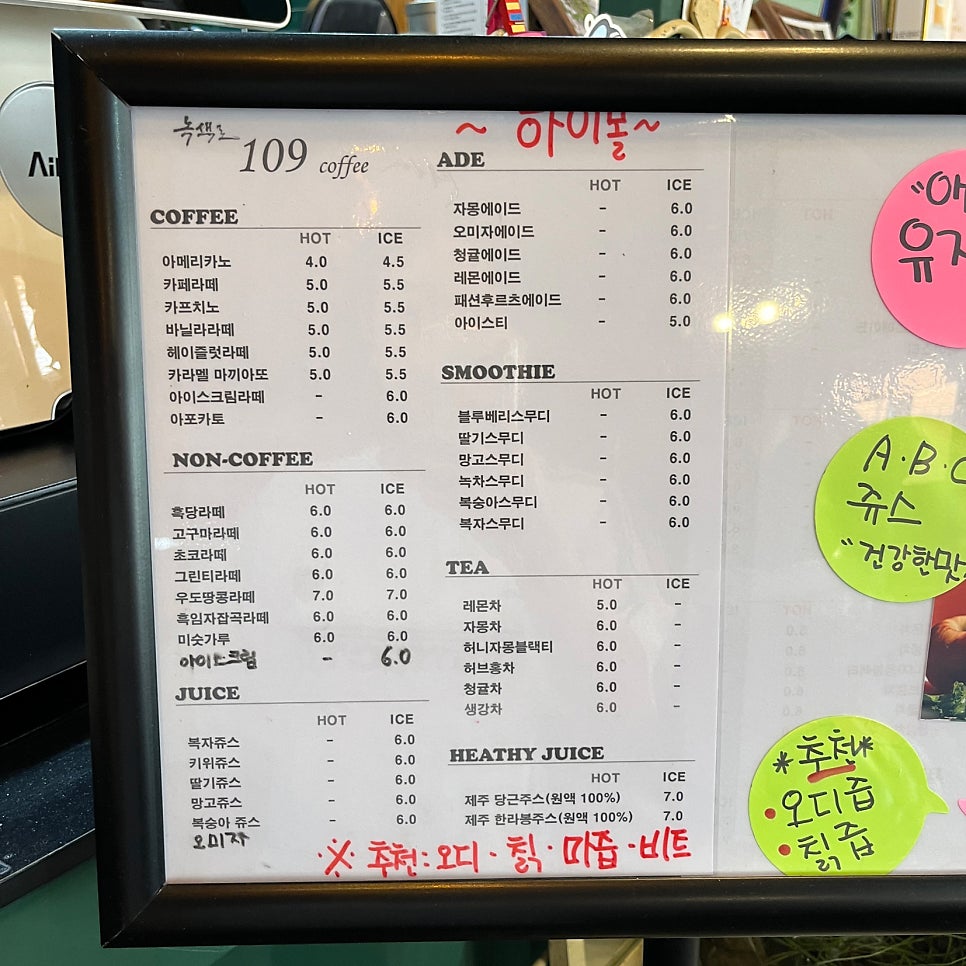 녹색로
109 coffee
COFFEE
HOT ICE
아메리카노 4.0 4.5
카페라떼 5.0 5.5
카프치노 5.0 5.5
바닐라라떼 5.0 5.5
헤이즐럿라떼 5.0 5.5
카라멜 마끼아또 5.0 5.5
아이스크림라떼 - 6.0
아포카토 - 6.0
NON-COFFEE
HOT ICE
흑당라떼 6.0 6.0
고구마라떼 6.0 6.0
초코라떼 6.0 6.0
그린티라떼 6.0 6.0
우도땅콩라떼 7.0 7.0
흑임자잡곡라떼 6.0 6.0
미숫가루 6.0 6.0
아이스크림 - 6.0
JUICE
HOT ICE
복자쥬스 - 6.0
키위쥬스 - 6.0
딸기쥬스 - 6.0
망고쥬스 - 6.0
복숭아 쥬스 - 6.0
오미자
~ 하이몰 ~
ADE
HOT ICE
자몽에이드 - 6.0
오미자에이드 - 6.0
청귤에이드 - 6.0
레몬에이드 - 6.0
패션후르츠에이드 - 6.0
아이스티 - 5.0
SMOOTHIE
HOT ICE
블루베리스무디 - 6.0
딸기스무디 - 6.0
망고스무디 - 6.0
녹차스무디 - 6.0
복숭아스무디 - 6.0
복자스무디 - 6.0
TEA
HOT ICE
레몬차 5.0 -
자몽차 6.0 -
허니자몽블랙티 6.0 -
허브홍차 6.0 -
청귤차 6.0 -
생강차 6.0 -
HEATHY JUICE
HOT ICE
제주 당근주스(원액 100%) 7.0
제주 한라봉주스(원액 100%) 7.0
※ 추천: 오디 · 칡 · 마즙 · 비트
A·B·C
쥬스
"건강한맛
*추천*
• 오디즙
• 칡즙